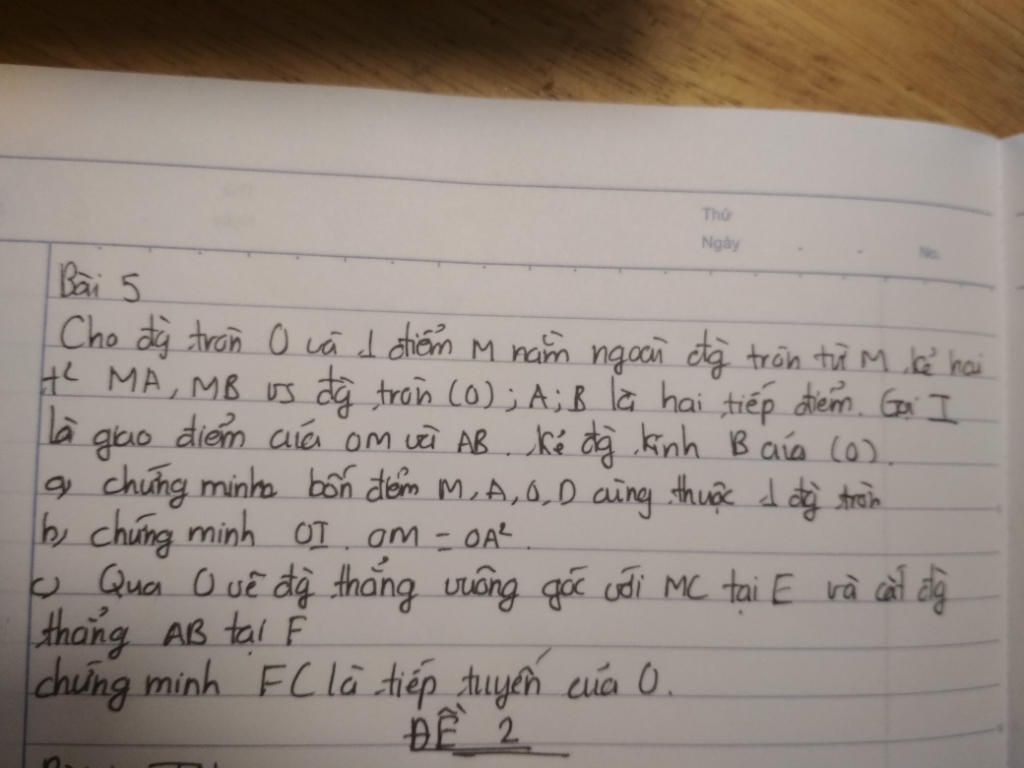 Thứ
Ngày No.
Bài 5
Cho đg tròn O và 1 điểm M nằm ngoài đg tròn từ M kẻ hai
t² MA, MB vs đg tròn (O); A; B là hai tiếp điểm. Gọi I
là giao điểm của OM và AB. kẻ đg kính B của (O).
a, chứng minh bốn điểm M, A, O, D cùng thuộc 1 đg tròn
b, chứng minh OI. OM = OA².
c, Qua O vẽ đg thẳng vuông góc với MC tại E và cắt đg
thẳng AB tại F
chứng minh FC là tiếp tuyến của O.
ĐỀ 2